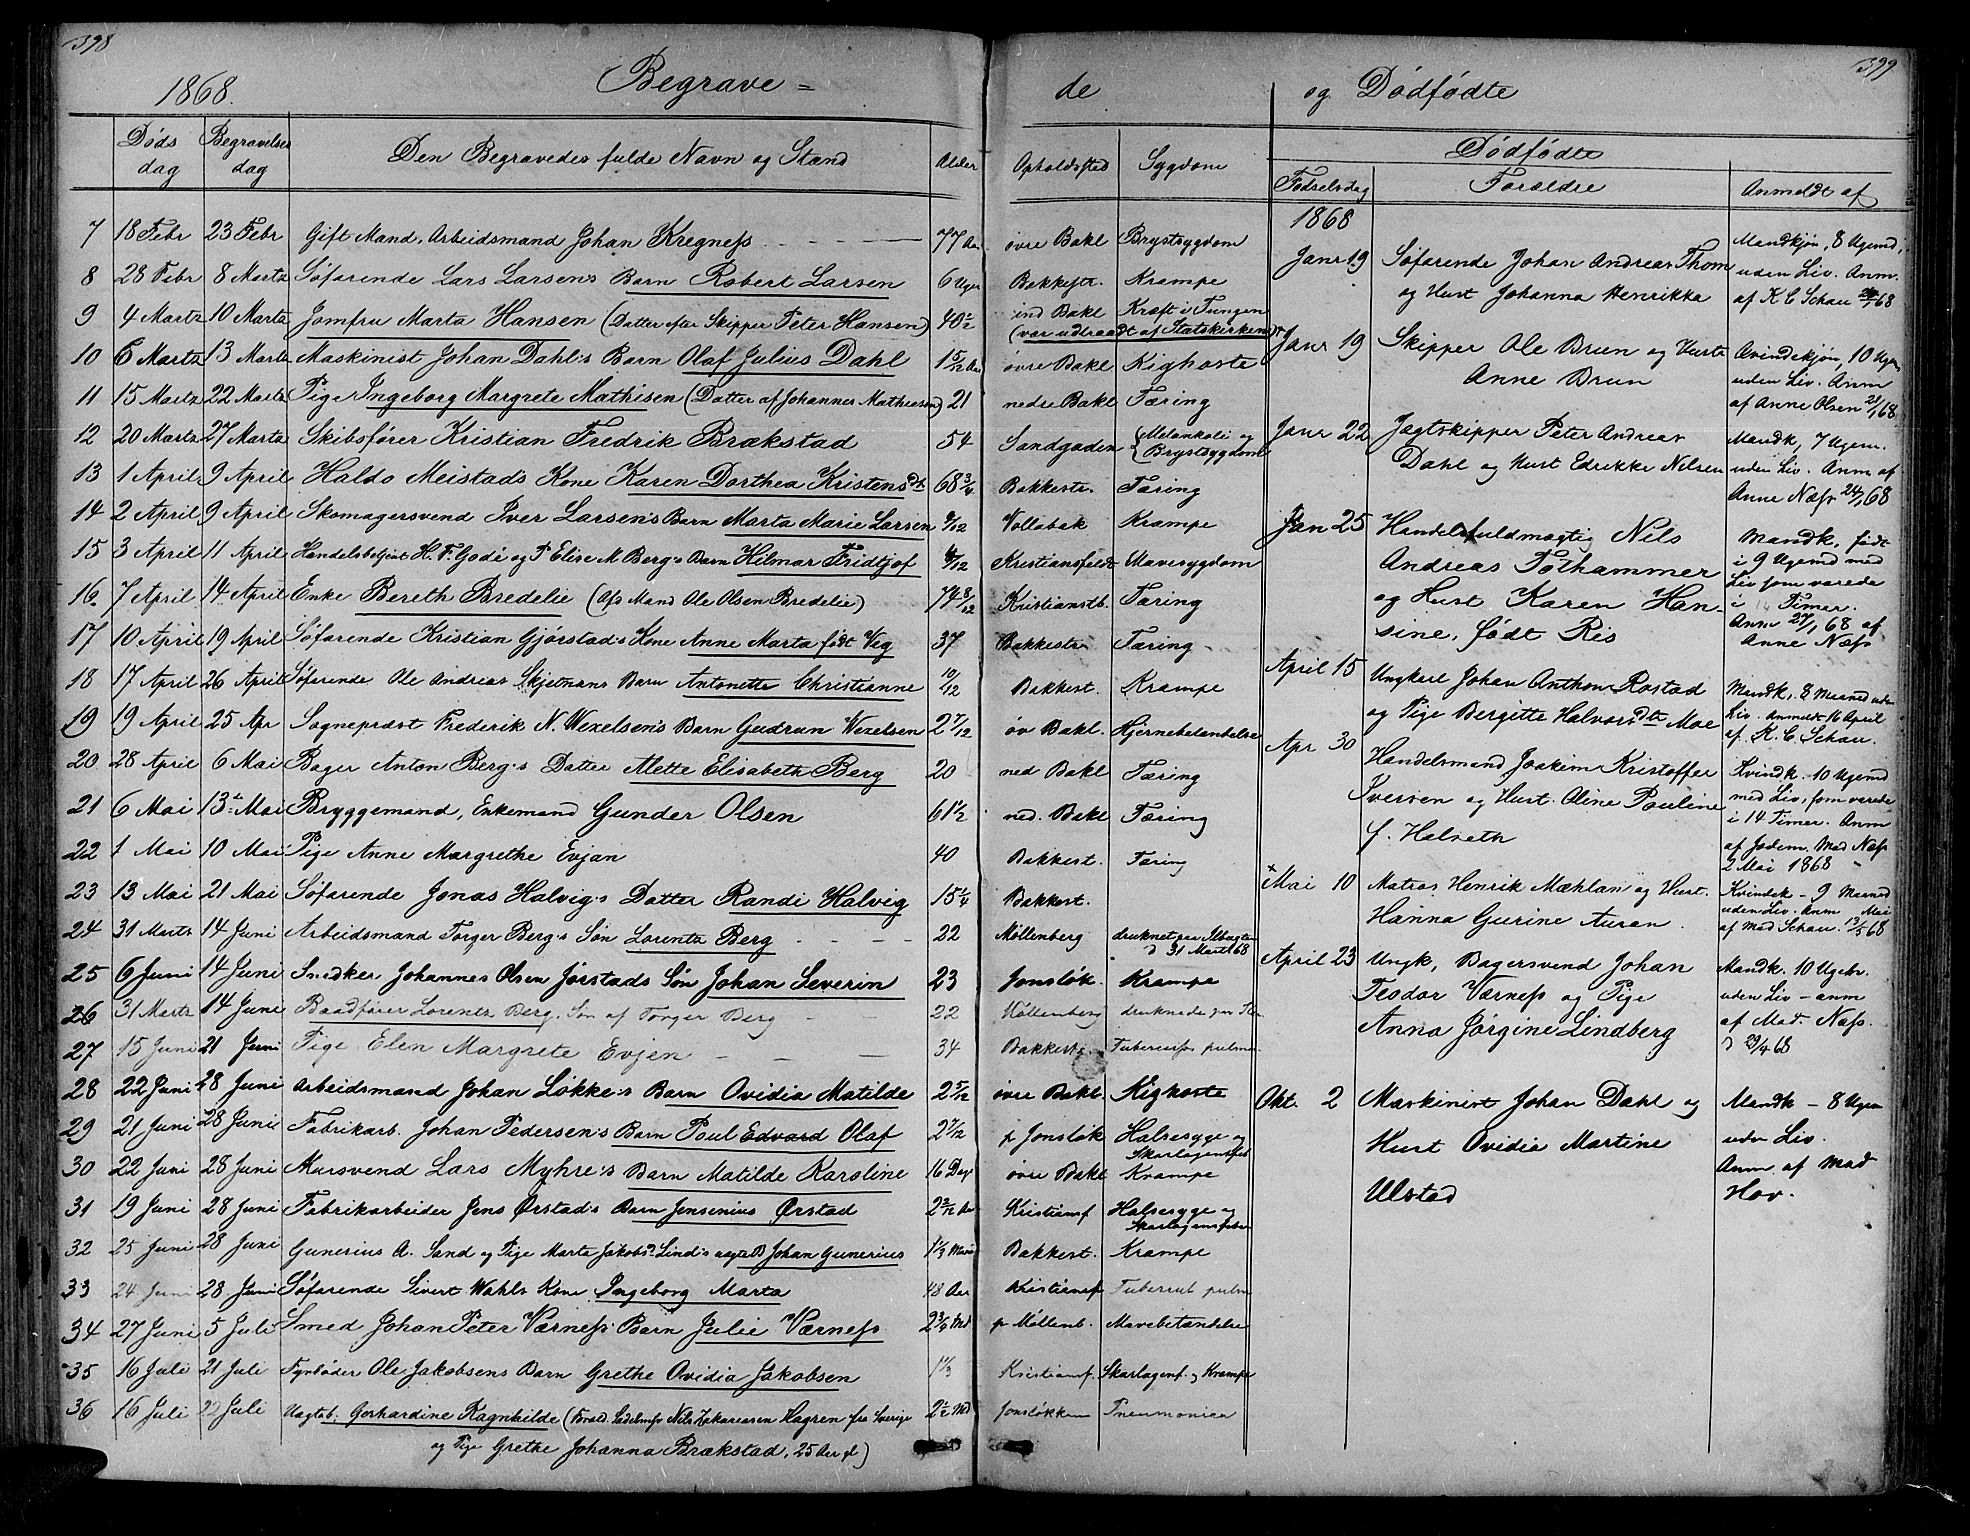 398
1868.
Begrave=
Døds dag
Begravelses dag
Den Begravedes fulde Navn og Stand
Alder
7 18 Febr 23 Febr Gift Mand, Arbeidsmand Johan Kregness 77 Aar
8 28 Febr 8 Martz Søfarende Lars Larsen's Barn Robert Larsen 6 Uger
9 4 Martz 10 Martz Jomfru Marta Hansen (Datter efter Skipper Peter Hansen) 40½
10 6 Martz 13 Martz Maskinist Johan Dahl's Barn Olaf Julius Dahl 1 5/12 Aar
11 15 Martz 22 Martz Pige Ingeborg Margrete Mathisen (Datter af Johannes Mathiesen) 21
12 20 Martz 27 Martz Skibsfører Kristian Fredrik Brækstad 54
13 1 April 9 April Haldo Meistad's Kone Karen Dorthea Kristensdt 68 3/4
14 2 April 9 April Skomagersvend Iver Larsen's Barn Marta Marie Larsen 9/12
15 3 April 11 April Handelsbetjent H. F. Godė og P Elise M Berg's Barn Hilmar Fridtjof
16 7 April 14 April Enke Bereth Bredelie (Afs Mand Ole Olsen Bredelie) 74 8/12
17 10 April 19 April Søfarende Kristian Gjørstad's Kone Anne Marta født Vig 37
18 17 April 26 April Søfarende Ole Andreas Skjetnans Barn Antonette Christianne 10/12
19 19 April 25 Apr Sognepræst Frederik N. Wexelsen's Barn Gudrun Wexelsen 2 7/12
20 28 April 6 Mai Bager Anton Berg's Datter Alette Elisabeth Berg 20
21 6 Mai 13 Mai Bryggemand, Enkemand Gunder Olsen 61½
22 1 Mai 10 Mai Pige Anne Margrethe Evjan 40
23 13 Mai 21 Mai Søfarende Jonas Halvig's Datter Randi Halvig 15¼
24 31 Martz 14 Juni Arbeidsmand Torger Berg's Søn Lorentz Berg 22
25 6 Juni 14 Juni Snedker Johannes Olsen Jørstads Søn Johan Severin 23
26 31 Martz 14 Juni Baadfører Lorentz Berg, Søn af Torger Berg 22
27 15 Juni 21 Juni Pige Elen Margrete Evjen 34
28 22 Juni 28 Juni Arbeidsmand Johan Løkke's Barn Ovidia Matilde 2 5/12
29 21 Juni 28 Juni Fabrikarb. Johan Pedersen's Barn Poul Edvard Olaf 2 7/12
30 22 Juni 28 Juni Mursvend Lars Myhre's Barn Matilde Karoline 16 Dage
31 19 Juni 28 Juni Fabrikarbeider Jens Ørstad's Barn Jensenius Ørstad 2 2/12 Aar
32 25 Juni 28 Juni Gunerius A. Sand og Pige Marta Jakobsd. Lind's uægte B Johan Gunerius 1⅓
33 24 Juni 28 Juni Søfarende Sivert Wahls Kone Ingeborg Marta 48 Aar
34 27 Juni 5 Juli Smed Johan Peter Værness Barn Julie Værness
35 16 Juli 21 Juli Fyrbøder Ole Jakobsens Barn Grethe Ovidia Jakobsen 1⅓
36 16 Juli 22 Juli Uægteb. Gerhardine Ragnhilde (Foræld. Sadelms. Nils Zakariassen Hagren fra Sverige 2½ Md
og Pige Grethe Johanna Brækstad, 25 Aar gl)
399
de
og Dødfødte
Opholdssted
Sygdom
øvre Bakl Brystsygdom
Bakkestr. Krampe
ind Bakl Kræft i Tungen
(var udtraadt af Statskirken)
øvre Bakl Kighoste
nedre Bakl Tæring
Sandgaden {Melankoli og
Brystsygdom
Bakkestr. Tæring
Vollabak Krampe
Kristiansfeldt Mavesygdom
Kristianstb. Tæring
Bakkestr Tæring
Bakkest. Krampe
øv Bakl. Hjernebetændelse
ned Bakl Tæring
ned. Bakl Tæring
Bakkest. Tæring
Bakkest.
Møllenberg druknet paa Ilbugten
d 31 Marts 68
Jonsløk. Krampe
Møllenberg druknede
Bakkest Tuberculos pulmon
øvre Bakl. Kighoste
p Jonsløk Halsesyge og
Skarlagensfeb
øvre Bakl Krampe
Kristiansf Halsesyge og
Skarlagensfeber
Bakkest. Krampe
Kristiansf Tubercul pulm
p Møllenb. Mavebetændelse
Kristiansf. Skarlagenf. og Krampe
Jonsløkken Pneumonica
Dødfødte
Fødselsdag
Forældre
Anmeldt af
1868
Janr 19 Søfarende Johan Andreas Thom
og Hust Johanna Henrikka
Mandkjøn, 8 Ugemd,
uden Liv. Anm.
af K C Schau
Janr 19 Skipper Ole Brun og Hustr
Anne Brun
Qvindekjøn, 10 Ugem
uden Liv. Anm
af Anne Olsen 21/1 68
Janr 22 Jagtskipper Peter Andreas
Dahl og Hust Edrikke Nilsen
Mandk, 7 Ugem.
uden Liv. Anm af
Anne Næss 24/1 68
Jan 25 Handelsfuldmægtig Nils
Andreas Folhammer
og Hust Karen Han-
sine, født Ris
Mandk, født
i 9 Ugemd med
Liv som varede
i 14 Timer.
Anm 27/1 68 af
Anne Næss
April 15 Ungkarl Johan Anthon Rostad
og Pige Bergitte Halvorsdtr Moe
Mandk, 8 Maaned uden
Liv. Anmeldt 16 April
af. K. C. Schau.
Apr 30 Handelsmand Joakim Kristoffer
Iversen og Hust. Oline Pauline
f. Halseth
Kvindk. 10 Ugemd
med Liv, som varede
i 14 Timer. Anm
af Jodem. Mad Næss
2 Mai 1868
Mai 10 Matros Henrik Mæhlan og Hust.
Hanna Gurine Auran
Kvindek - 9 Maaned
uden Liv. Anm Mai
af Mad Schau. 13/5 68
April 23 Ungk, Bagersvend Johan
Teodor Værness og Pige
Anna Jørgine Lindberg
Mandk. 10 Ugebr.
uden Liv - anm
af Mad. Næss.
d 29/4 68
Okt. 2 Maskinist Johan Dahl og
Hust Ovidia Martine
Ulstad
Mandk - 8 Ugem
uden Liv.
Anm. af Mad
Hov.